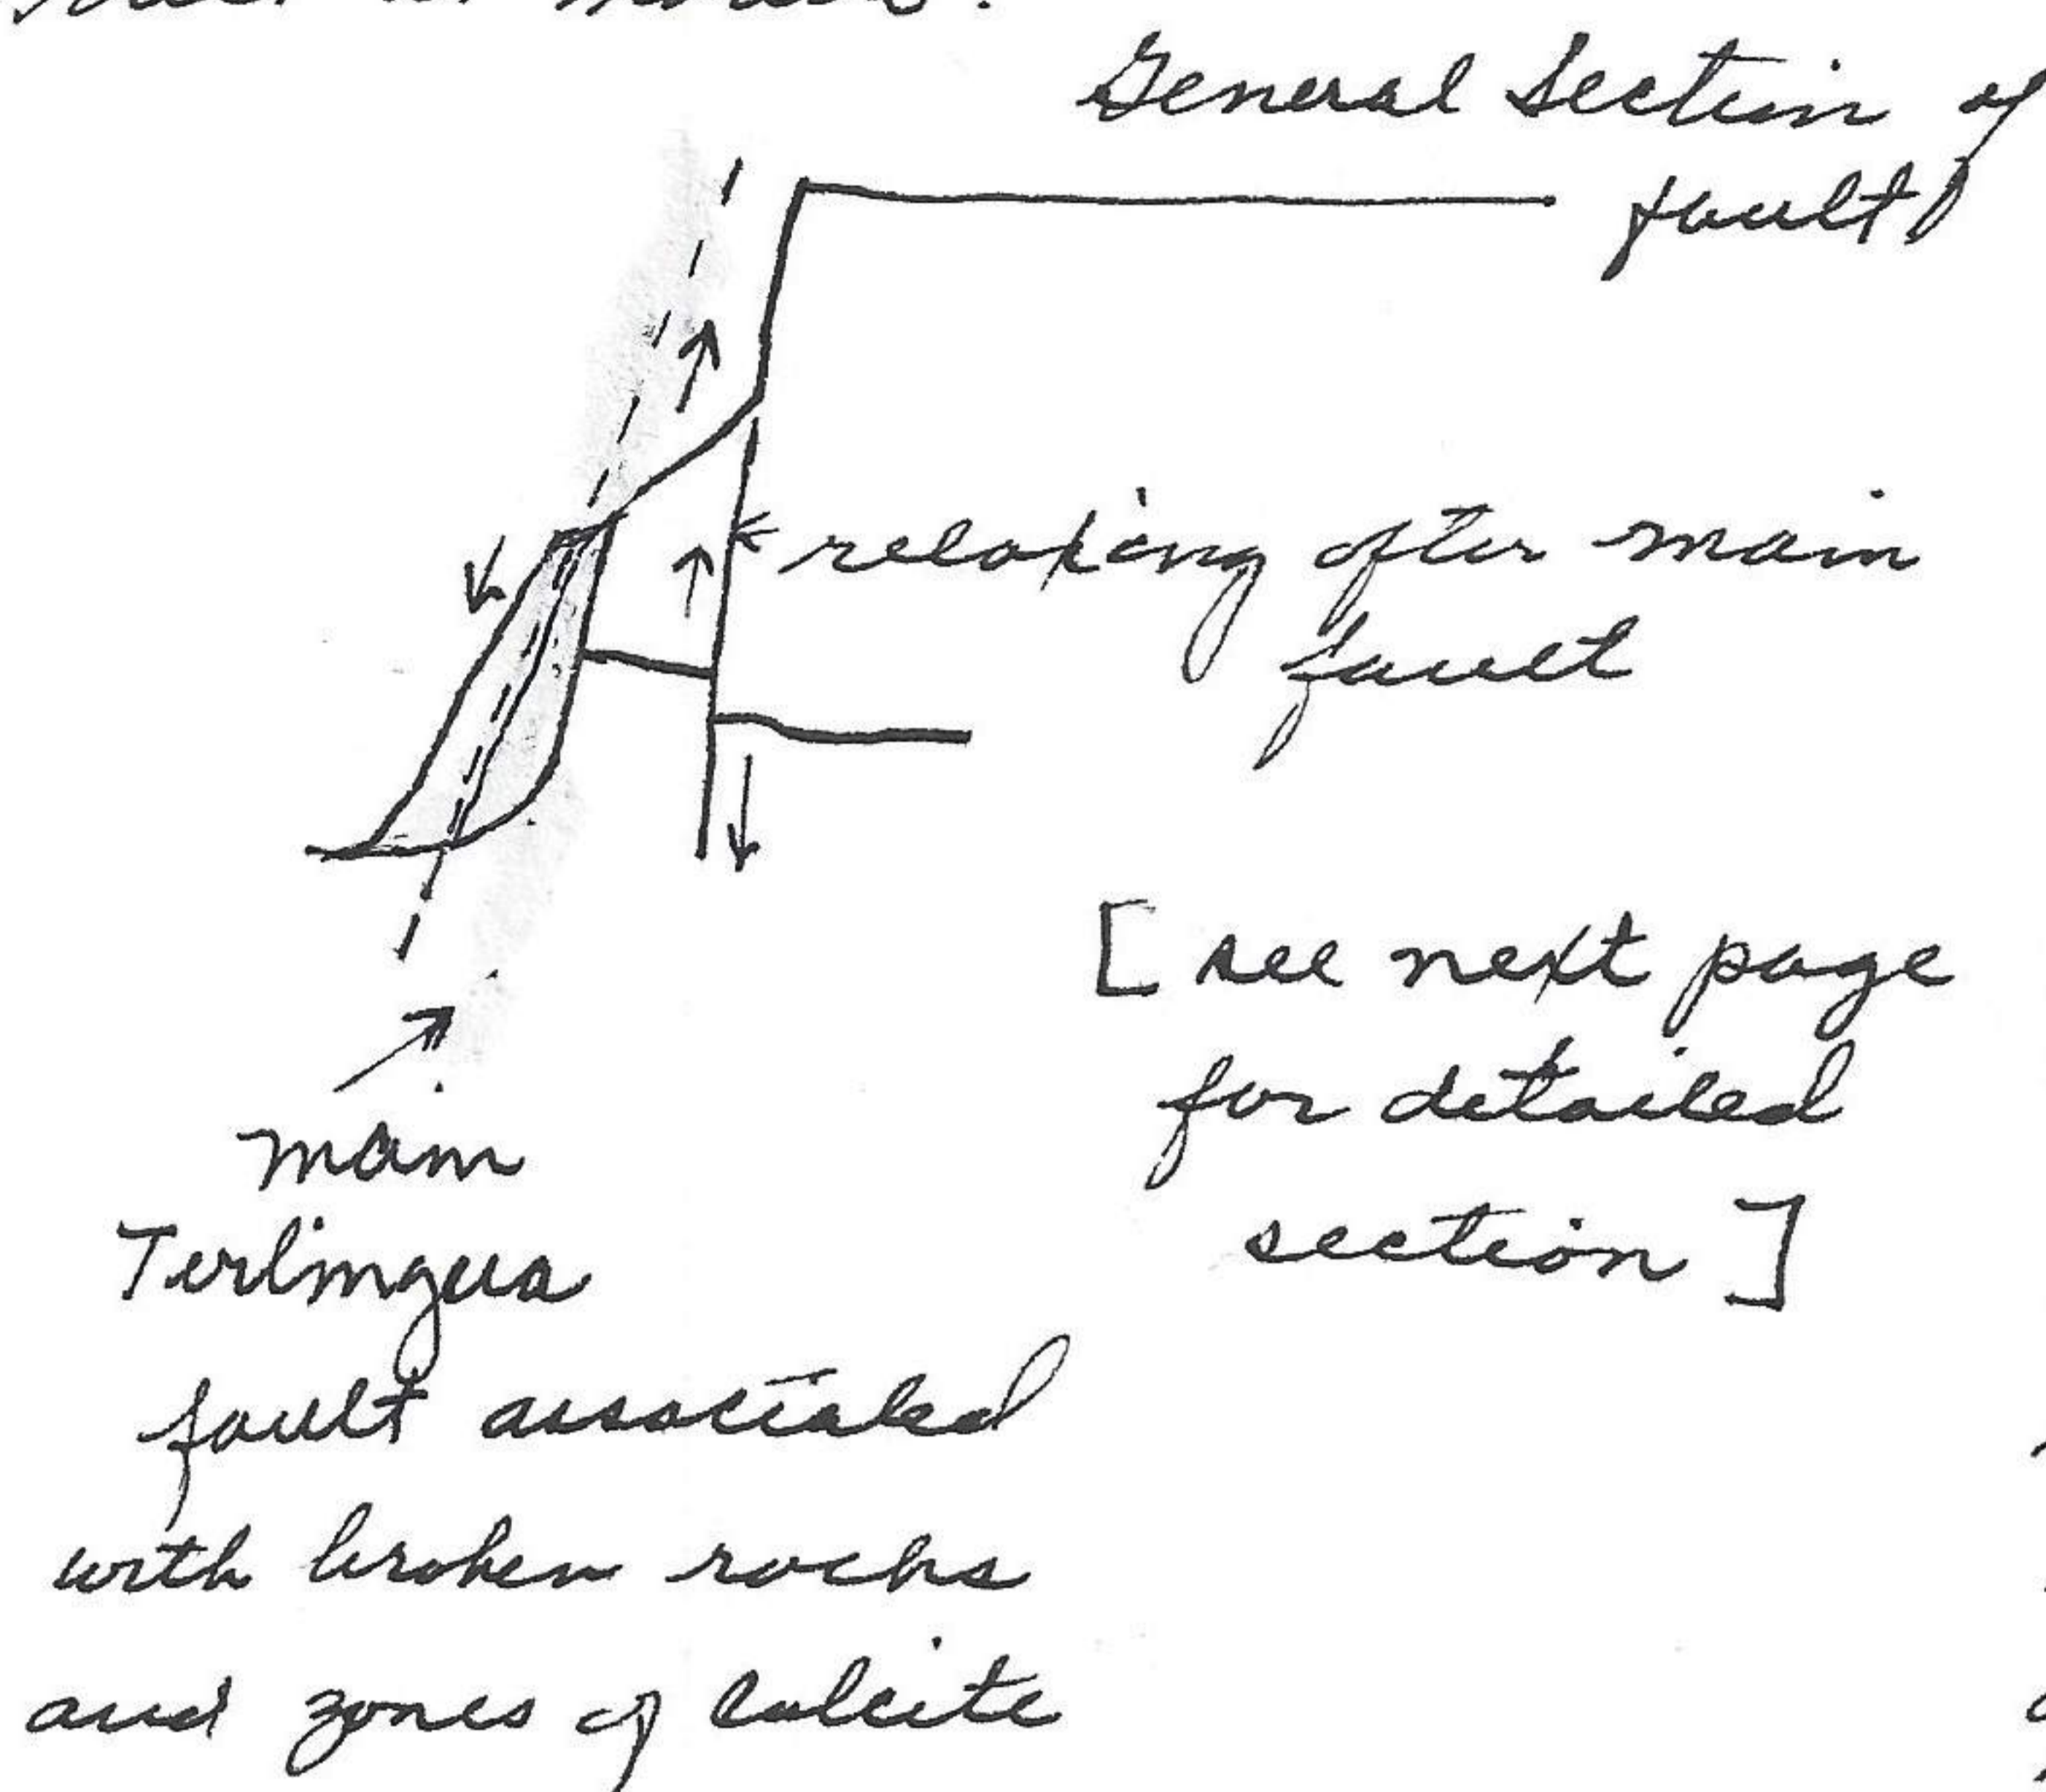 General Section of
fault
relaxing after main
fault
[ see next page
for detailed
section ]
main
Terlingua
fault associated
with broken rocks
and zones of calcite